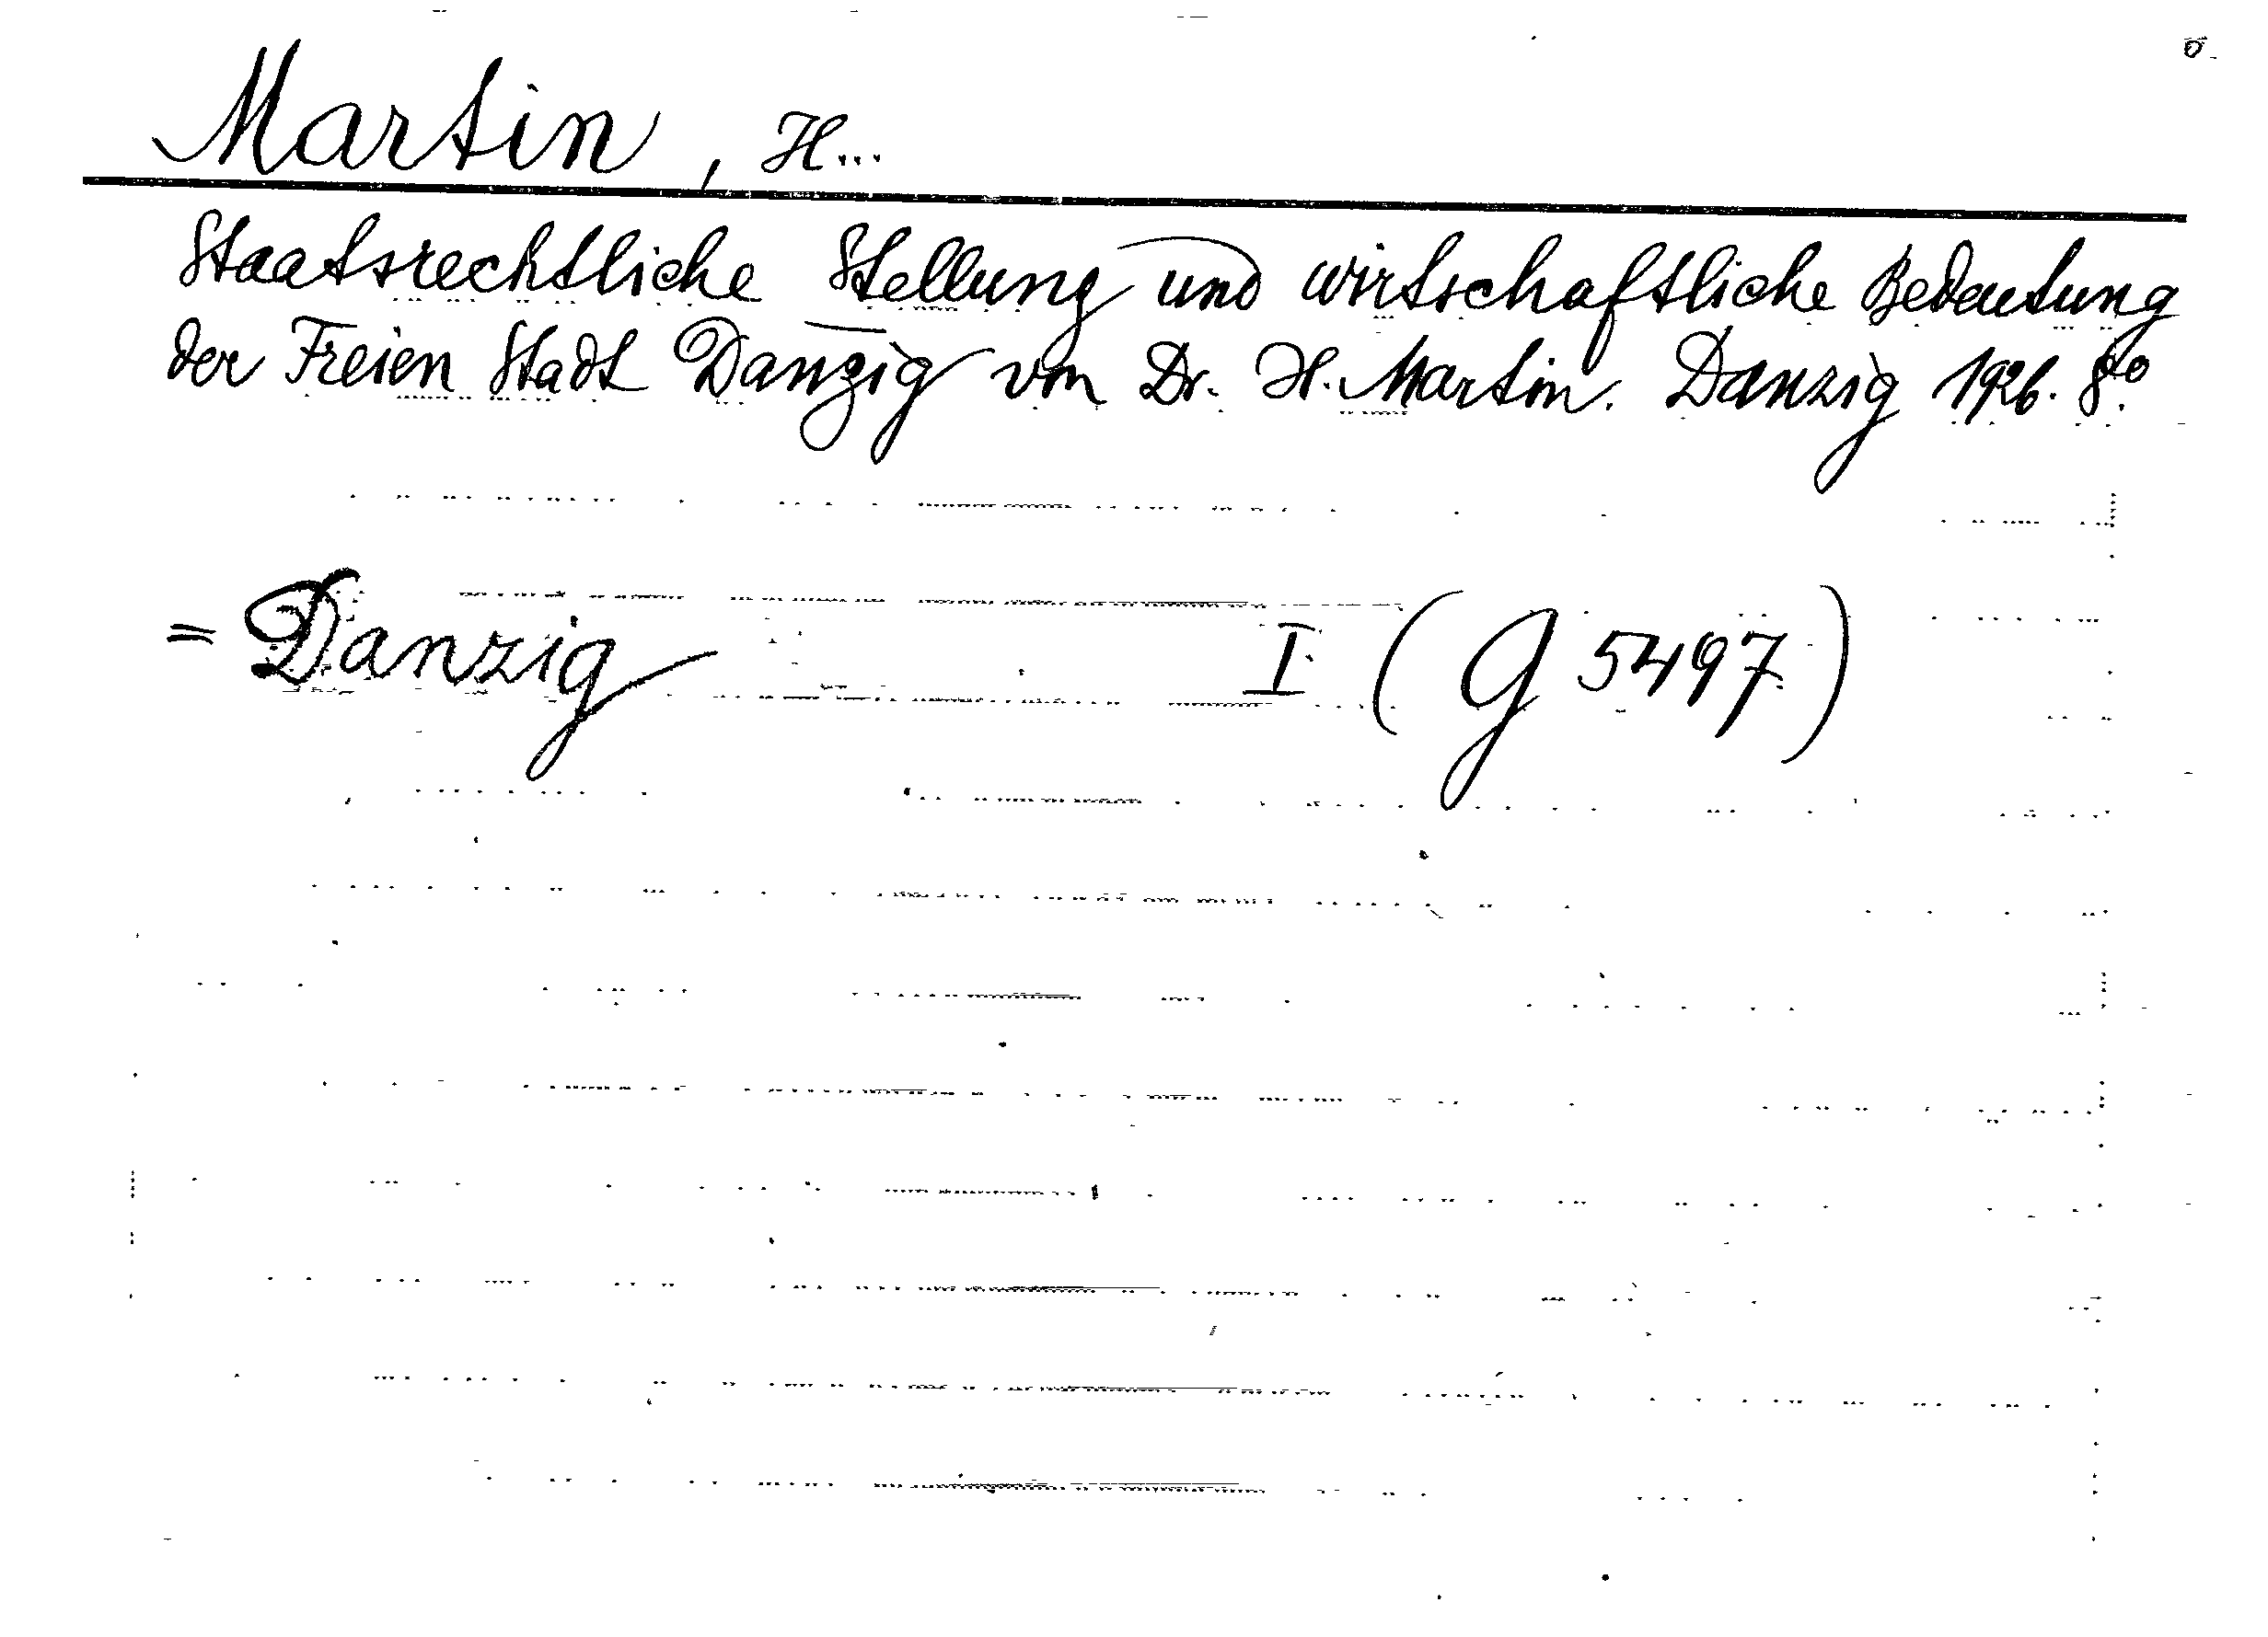 Martin, H...
Staatsrechtliche Stellung und wirtschaftliche Bedeutung
der Freien Stadt Danzig von Dr. H. Martin. Danzig 1926. 8°.
= Danzig I (G 5497)